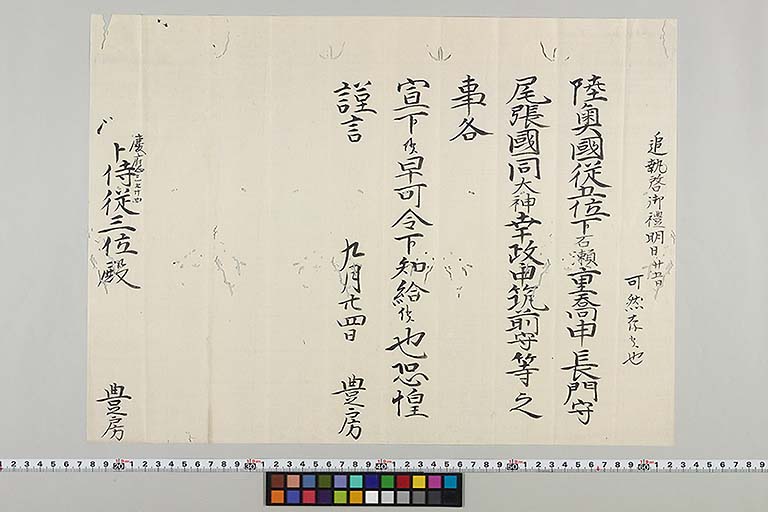 追執啓御禮明日廿五日
可然存候也
陸奥國従五位下石瀬重喬申長門守
尾張國同大神幸政申筑前守等之
事各
宣下候早可令下知給候也恐惶
謹言
九月廿四日 豊房
慶應二七廿四
卜侍従三位殿 豊房